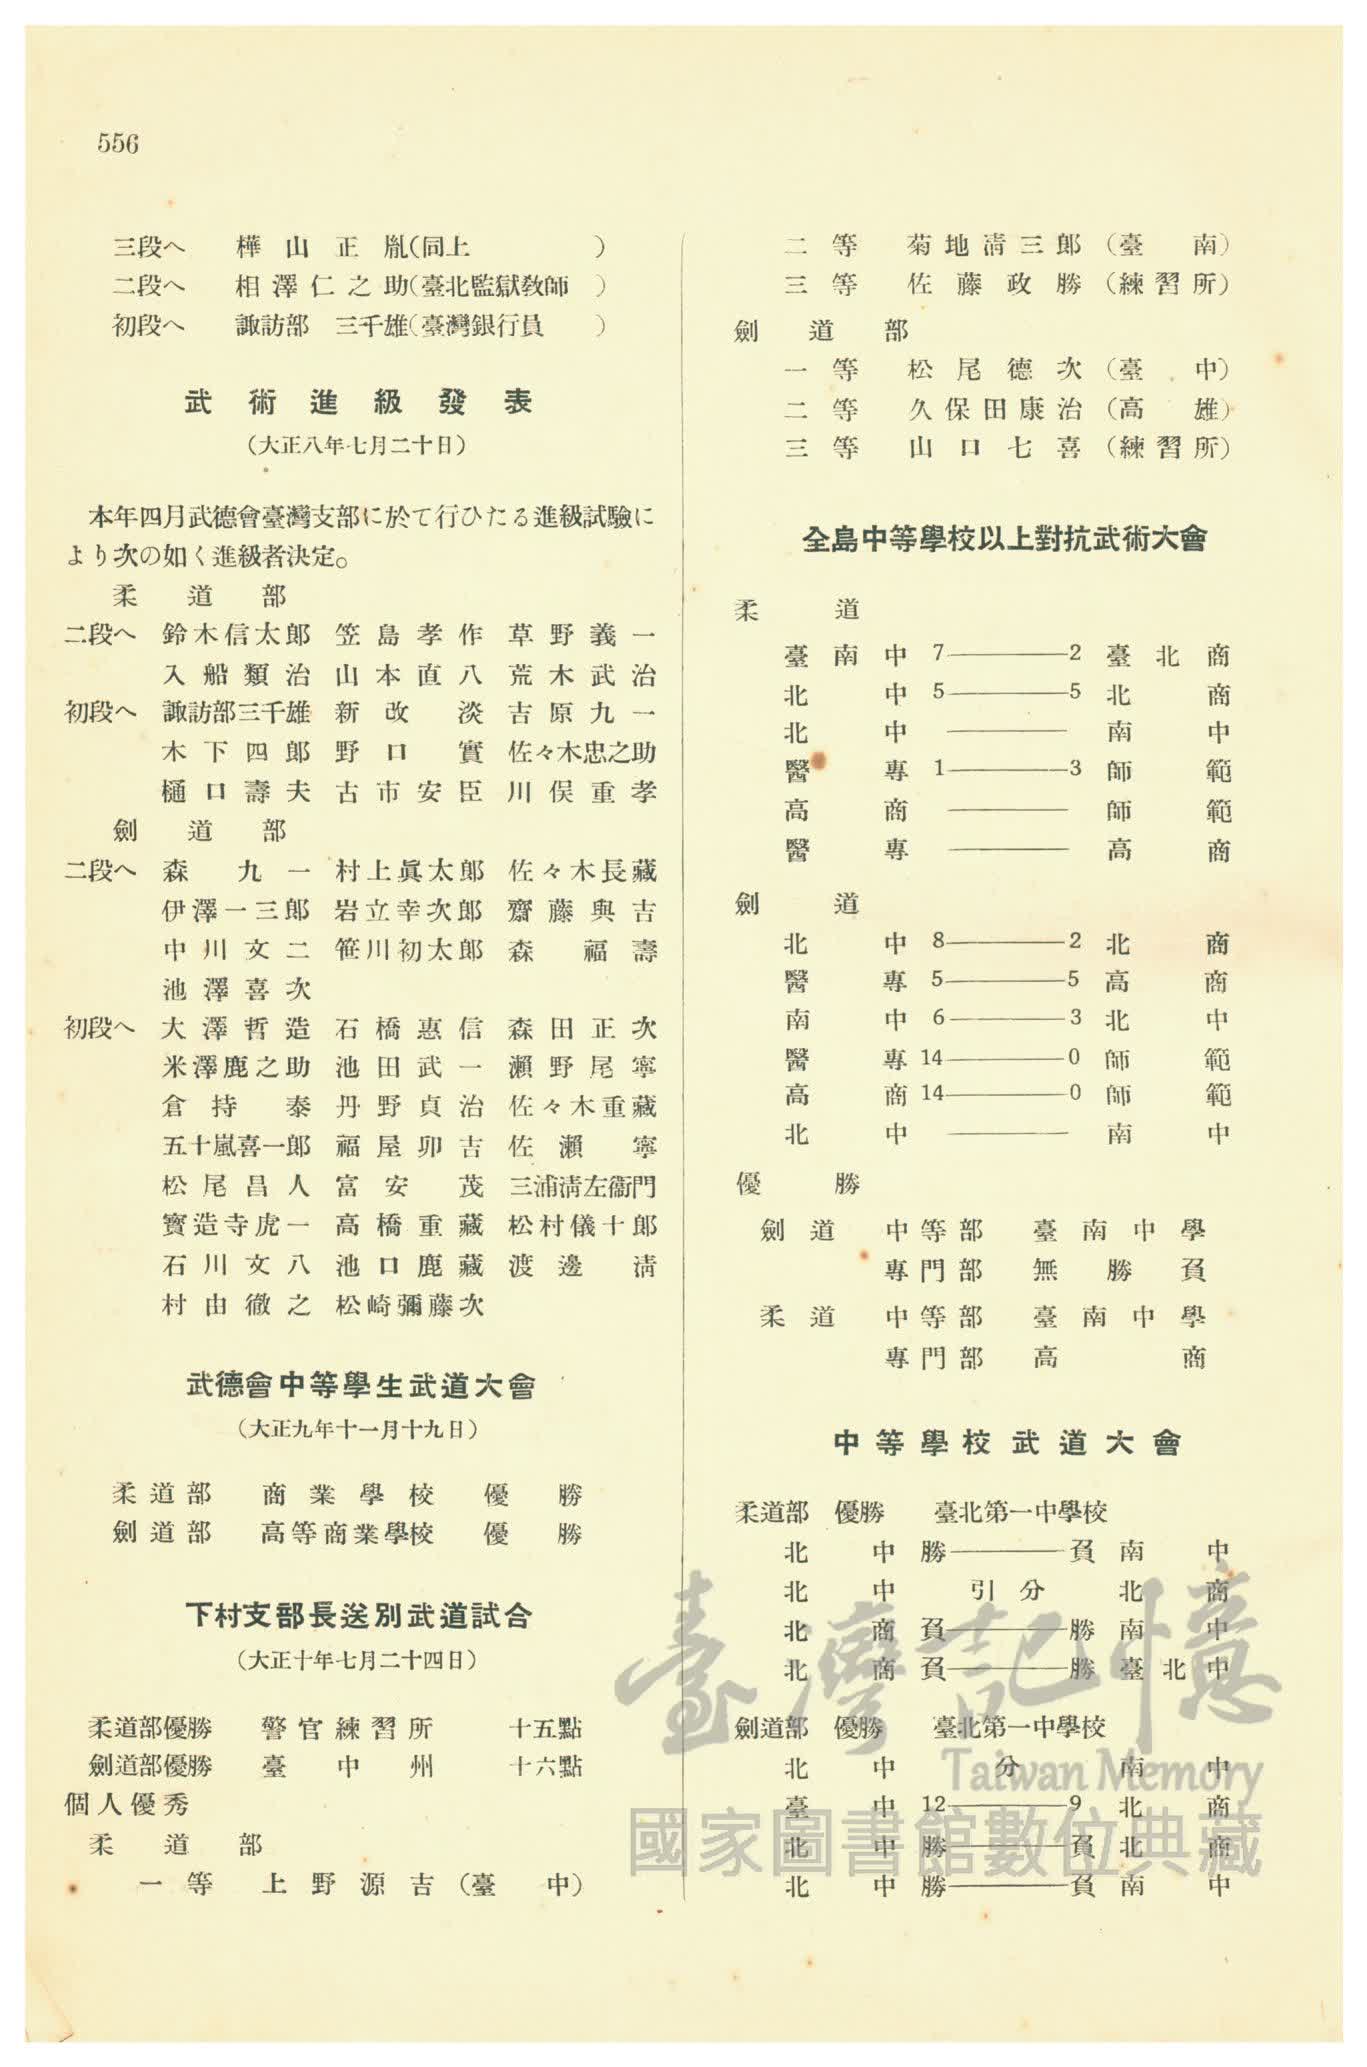 556
三段へ 樺山正胤(同上)
二段へ 相澤仁之助(臺北監獄敎師)
初段へ 諏訪部 三千雄(臺灣銀行員)
武術進級發表
(大正八年七月二十日)
本年四月武德會臺灣支部に於て行ひたる進級試驗に
より次の如く進級者決定。
柔道部
二段へ 鈴木信太郞 笠島孝作 草野義一
入船類治 山本直八 荒木武治
初段へ 諏訪部三千雄 新改淡 吉原九一
木下四郞 野口實 佐々木忠之助
樋口壽夫 古市安臣 川俣重孝
劍道部
二段へ 森九一 村上眞太郞 佐々木長藏
伊澤一三郞 岩立幸次郞 齋藤與吉
中川文二 笹川初太郞 森福壽
池澤喜次
初段へ 大澤哲造 石橋惠信 森田正次
米澤鹿之助 池田武一 瀨野尾寧
倉持泰 丹野貞治 佐々木重藏
五十嵐喜一郞 福屋卯吉 佐瀨寧
松尾昌人 富安茂 三浦淸左衞門
寳造寺虎一 高橋重藏 松村儀十郞
石川文八 池口鹿藏 渡邊淸
村由徹之 松崎彌藤次
武德會中等學生武道大會
(大正九年十一月十九日)
柔道部 商業學校 優勝
劍道部 高等商業學校 優勝
下村支部長送別武道試合
(大正十年七月二十四日)
柔道部優勝 警官練習所 十五點
劍道部優勝 臺中州 十六點
個人優秀
柔道部
一等 上野源吉(臺中)
二等 菊地淸三郞(臺南)
三等 佐藤政勝(練習所)
劍道部
一等 松尾德次(臺中)
二等 久保田康治(高雄)
三等 山口七喜(練習所)
全島中等學校以上對抗武術大會
柔道
臺南中 7———2 臺北商
北中 5———5 北商
北中 ——— 南中
醫專 1———3 師範
高商 ——— 師範
醫專 ——— 高商
劍道
北中 8———2 北商
醫專 5———5 高商
南中 6———3 北中
醫專 14———0 師範
高商 14———0 師範
北中 ——— 南中
優勝
劍道 中等部 臺南中學
專門部 無勝負
柔道 中等部 臺南中學
專門部 高商
中等學校武道大會
柔道部 優勝 臺北第一中學校
北中 勝———負 南中
北中 引分 北商
北商 負———勝 南中
北商 負———勝 臺北中
劍道部 優勝 臺北第一中學校
北中 分 南中
臺中 12———9 北商
北中 勝———負 北商
北中 勝———負 南中
臺灣記憶
Taiwan Memory
國家圖書館數位典藏